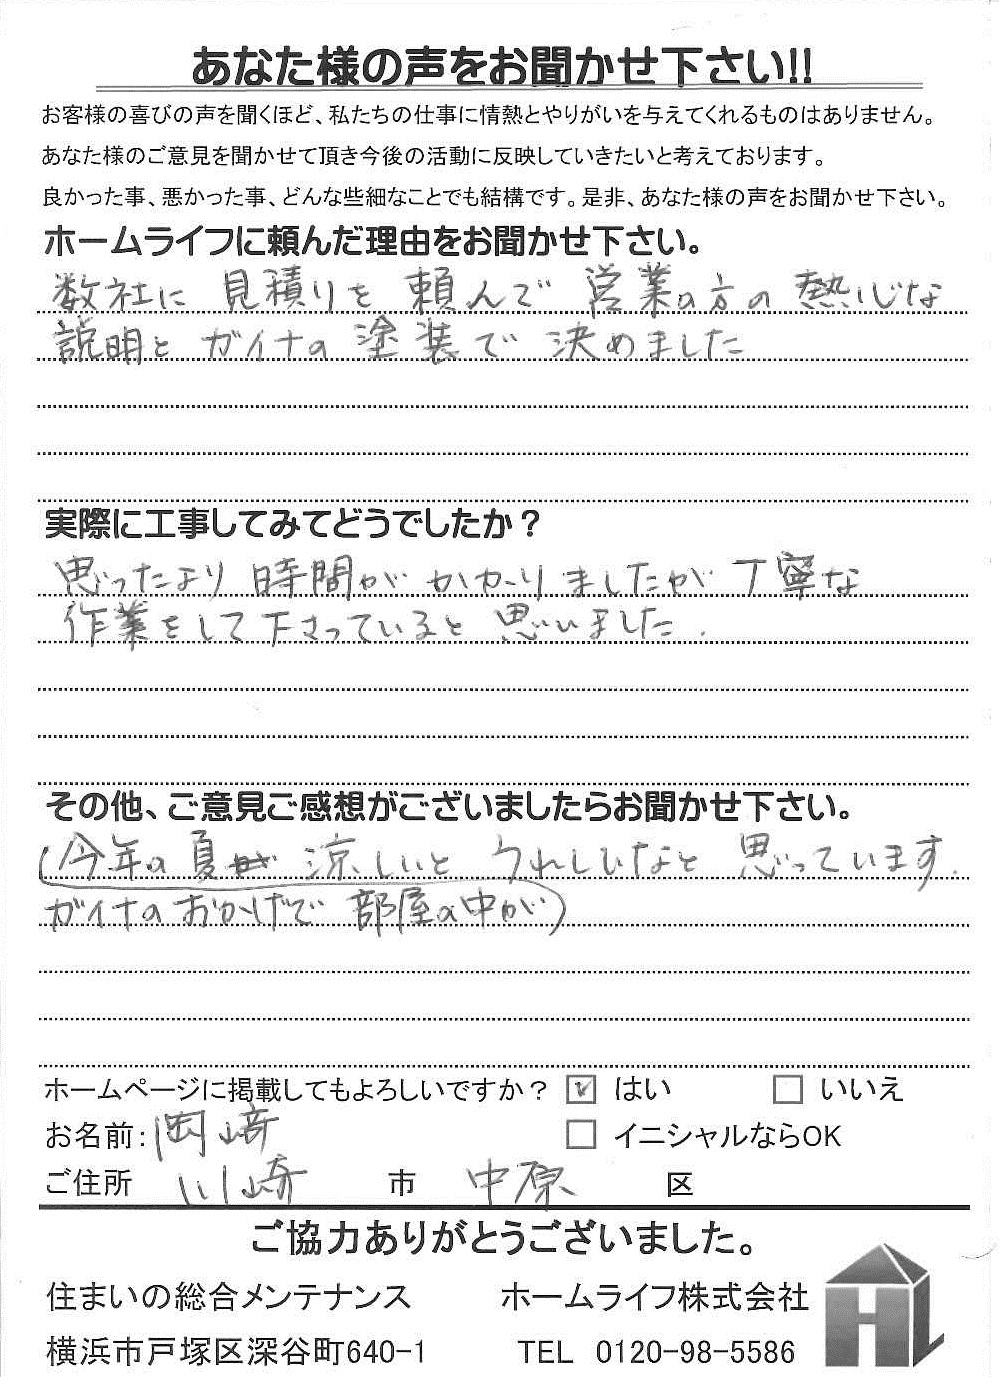 あなた様の声をお聞かせ下さい!!
お客様の喜びの声を聞くほど、私たちの仕事に情熱とやりがいを与えてくれるものはありません。
あなた様のご意見を聞かせて頂き今後の活動に反映していきたいと考えております。
良かった事、悪かった事、どんな些細なことでも結構です。是非、あなた様の声をお聞かせ下さい。
ホームライフに頼んだ理由をお聞かせ下さい。
数社に見積りを頼んで営業の方の熱心な
説明とガイナの塗装で決めました
実際に工事してみてどうでしたか？
思ったより時間がかかりましたが丁寧な
作業をして下さっていると思いました.
その他、ご意見ご感想がございましたらお聞かせ下さい。
(今年の夏 涼しいと うれしいなと 思っています.
ガイナのおかげで 部屋の中が)
ホームページに掲載してもよろしいですか？ ☑ はい □ いいえ
お名前: 岡﨑 □ イニシャルならOK
ご住所 川崎 市 中原 区
ご協力ありがとうございました。
住まいの総合メンテナンス ホームライフ株式会社
横浜市戸塚区深谷町640-1 TEL 0120-98-5586
HL